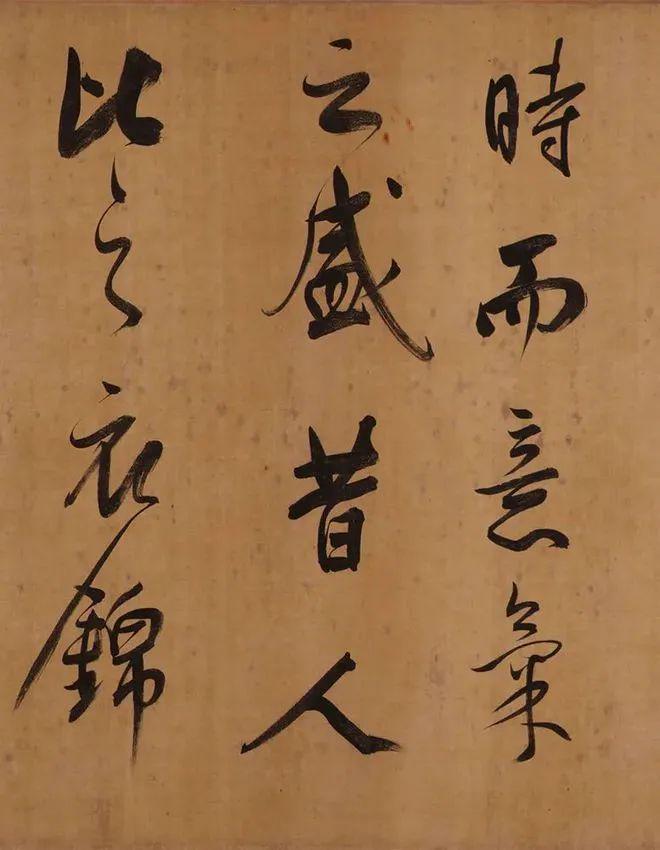 時而意氣
之盛昔人
比之衣錦